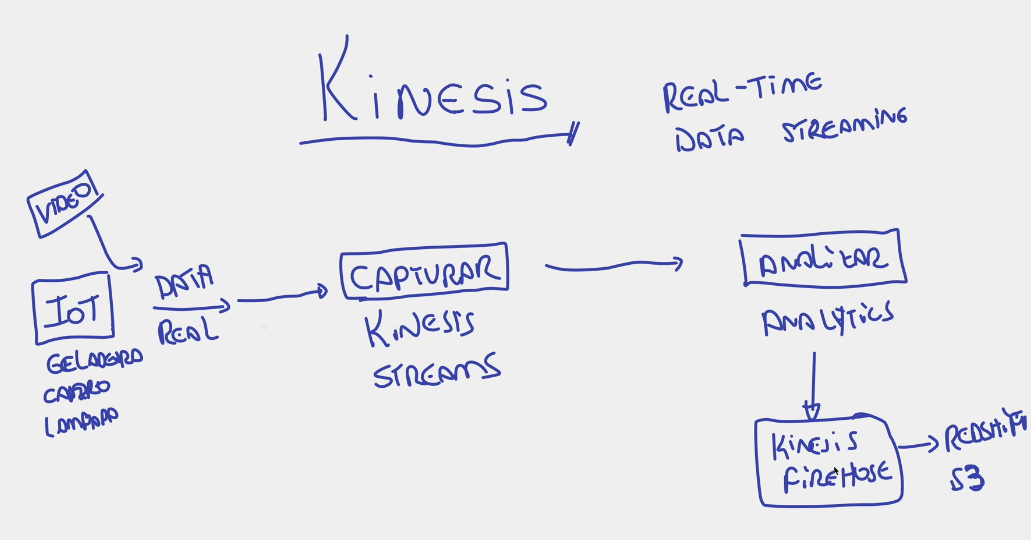 KINESIS
REAL-TIME
DATA STREAMING
VIDEO
IOT
GELADEIRA
CARRO
LAMPADA
DATA
REAL
CAPTURAR
KINESIS
STREAMS
ANALIZAR
ANALYTICS
KINESIS
FIREHOSE
REDSHIFT
S3